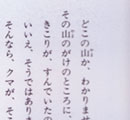 どこの山か、わかりませ
その山のがけのところに、
きこりが、すんでいたの
いいえ、そうではありま
そんなら、クマが、そこ